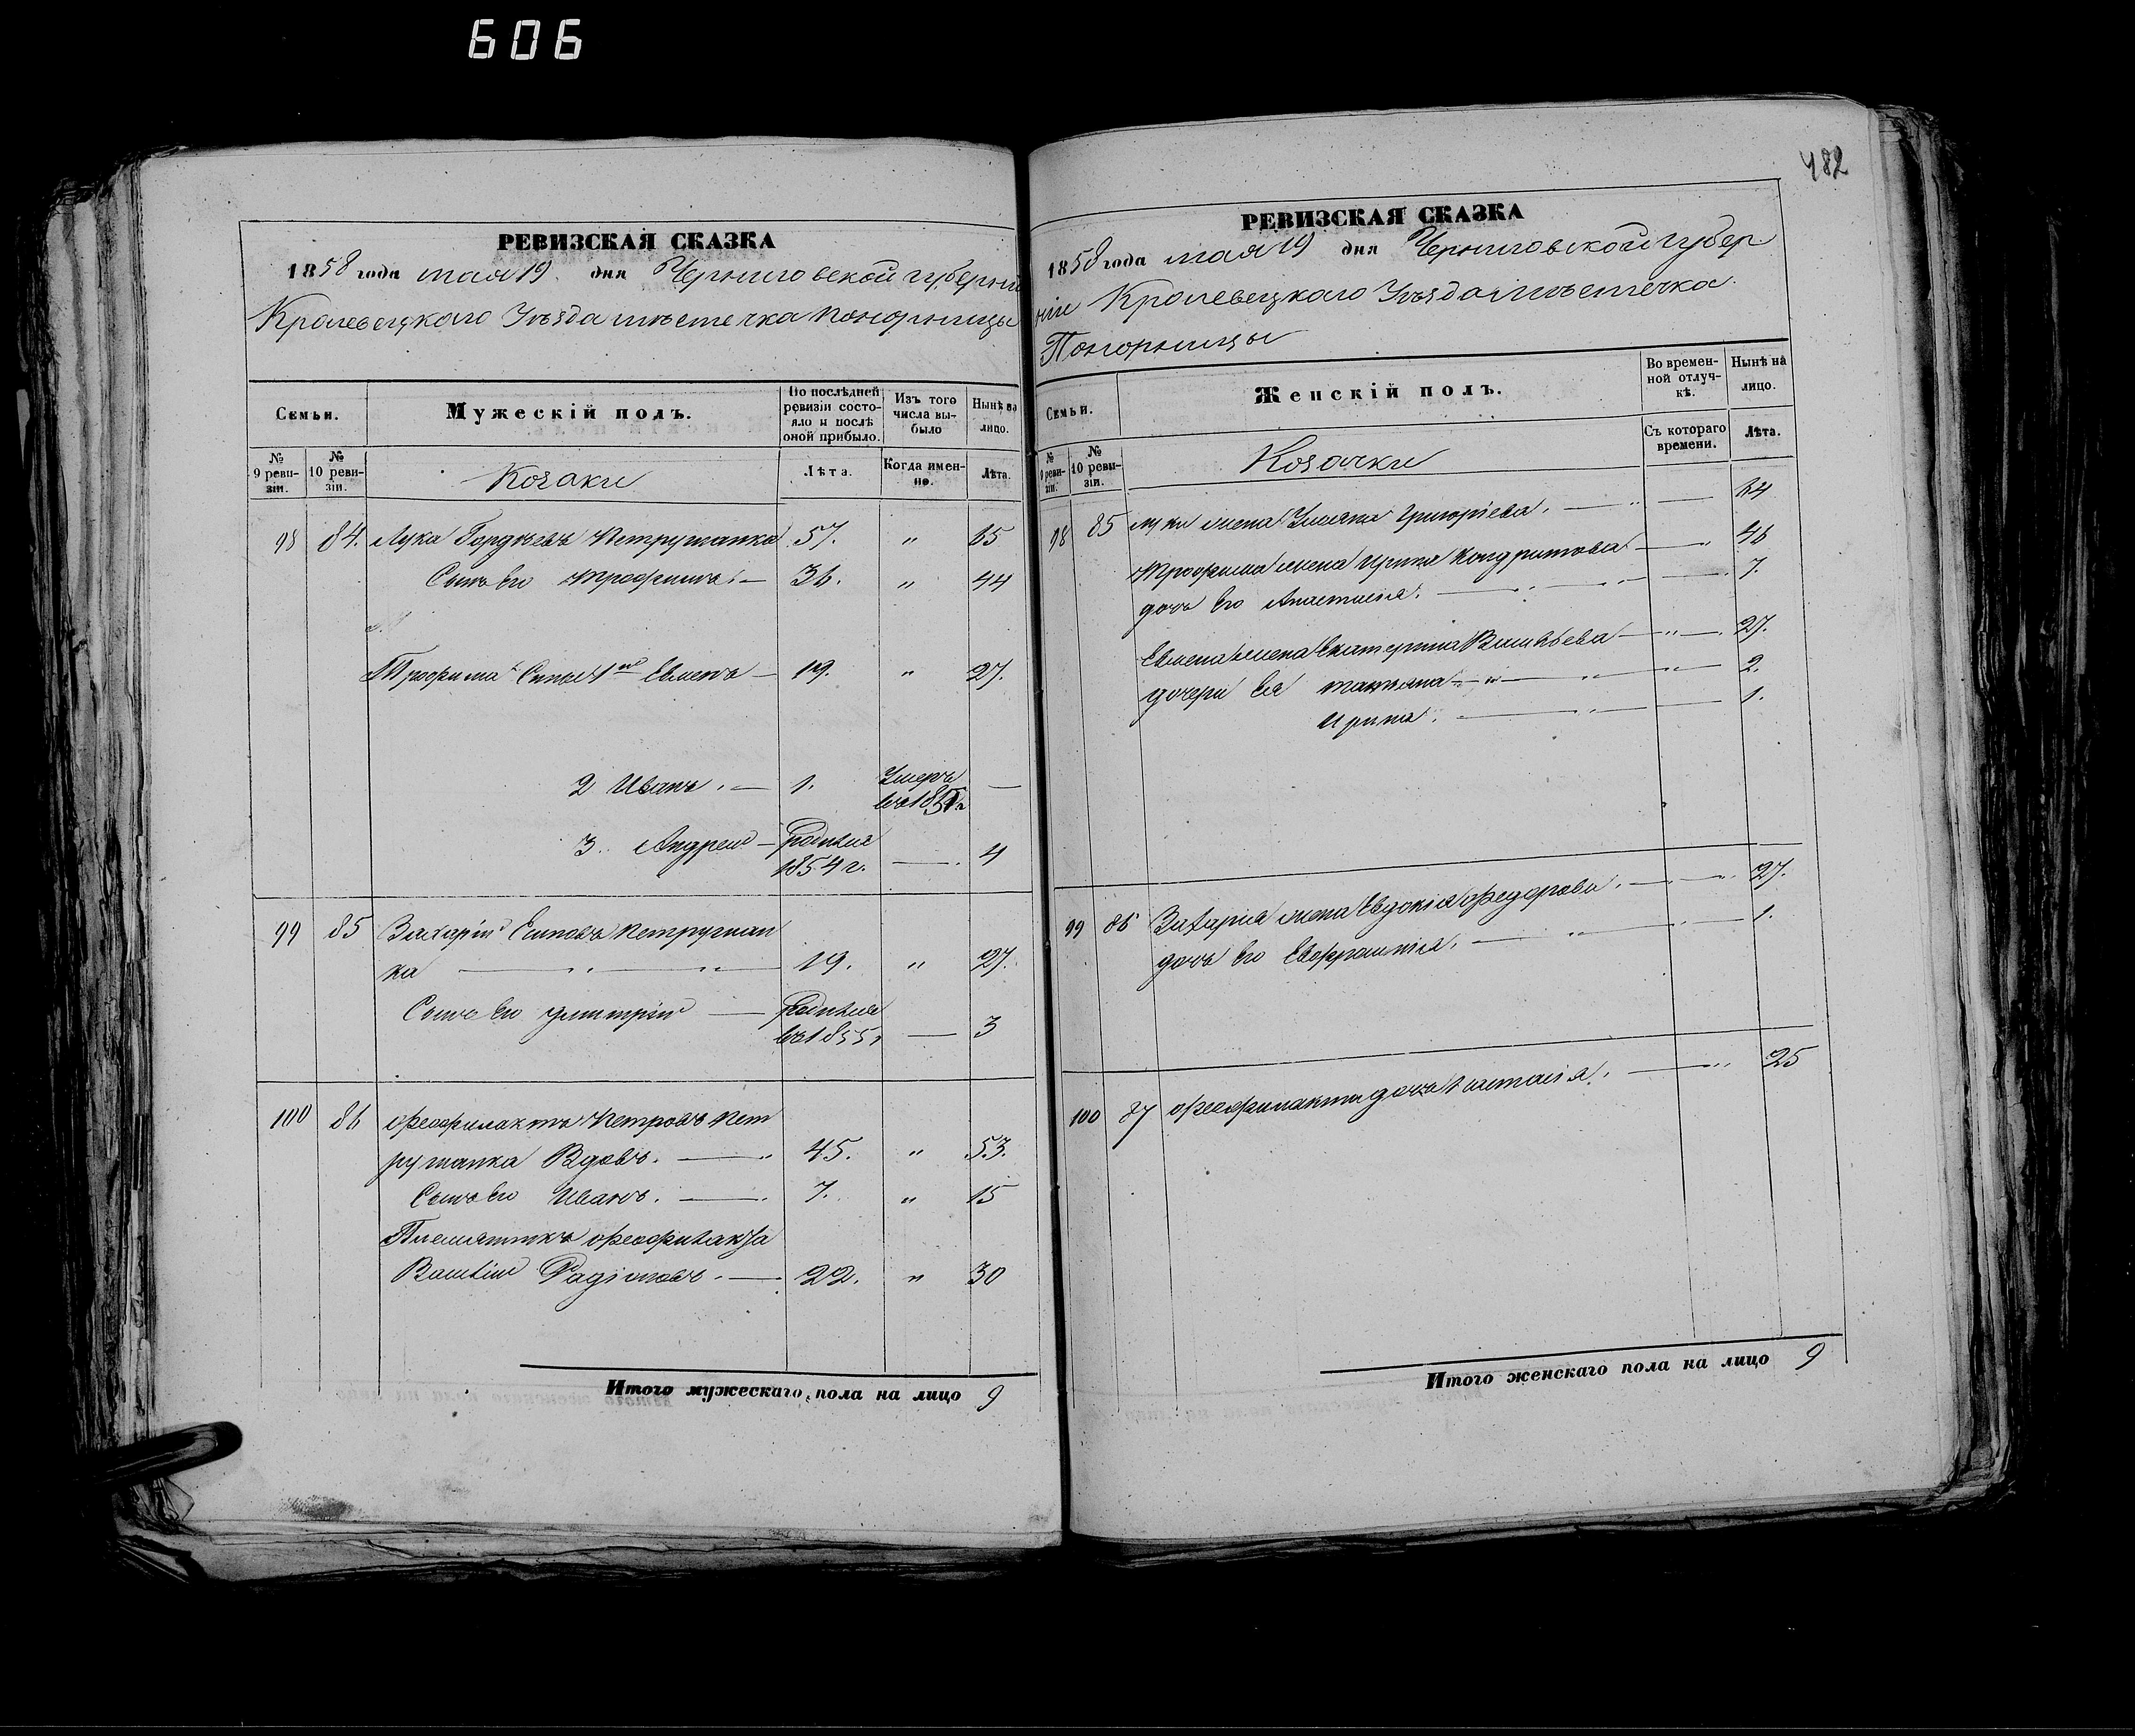 606
482
РЕВИЗСКАЯ СКАЗКА
1858 года мая 19 дня Черниговской губерніи
Кролевецкаго Уѣзда мѣстечка Понорницы
Семьи.
Мужескій полъ.
По послѣдней ревизіи состояло и послѣ оной прибыло.
Изъ того числа выбыло
Нынѣ на лицо.
№ 9 ревизіи.
№ 10 ревизіи.
Козаки
Лѣта.
Когда именно.
Лѣта.
98 84. Лука Гордѣевъ Петрушанка 57. " 65
Сынъ его Трофимъ. — 36. " 44
Трофима Сыны 1й Евменъ — 19. " 27.
2 Иванъ. — 1. Умеръ —
3. Андрей — родился 4
1854 г. —
99 85 Захарій Еѵповъ Петрушан
ка — " " — 19. " 27.
Сынъ его Димитрій — родился
въ 1855 г — 3
100 86 Феофилактъ Петровъ Пет
рушанка Вдовъ. — " 45. " 53.
Сынъ его Иванъ. — 7. " 15
Племянникъ Феофилакта
Василій Радіоновъ. — 22. " 30
Итого мужескаго пола на лицо 9
РЕВИЗСКАЯ СКАЗКА
1858 года мая 19 дня Черниговской губер
ніи Кролевецкаго Уѣзда мѣстечка
Понорницы
Семьи.
Женскій полъ.
Во временной отлучкѣ.
Нынѣ на лицо.
№ 9 ревизіи.
№ 10 ревизіи.
Козачки
Съ котораго времени.
Лѣта.
98 85 Луки жена Ульяна Григоріева. — " — 64
Трофима жена Ирина Кондратова — " 46
дочь его Анастасія. — " " — 7.
Евмена жена Екатерина Васильева — " — 27.
дочери ея Татьяна — " — " " — 2.
Ирина. — " — 1.
99 86 Захарія жена Евдокія Федорова. — " 27.
дочь его Евфросинія. — " " — 1.
100 87 Феофилакта дочь — " 25
Итого женскаго пола на лицо 9